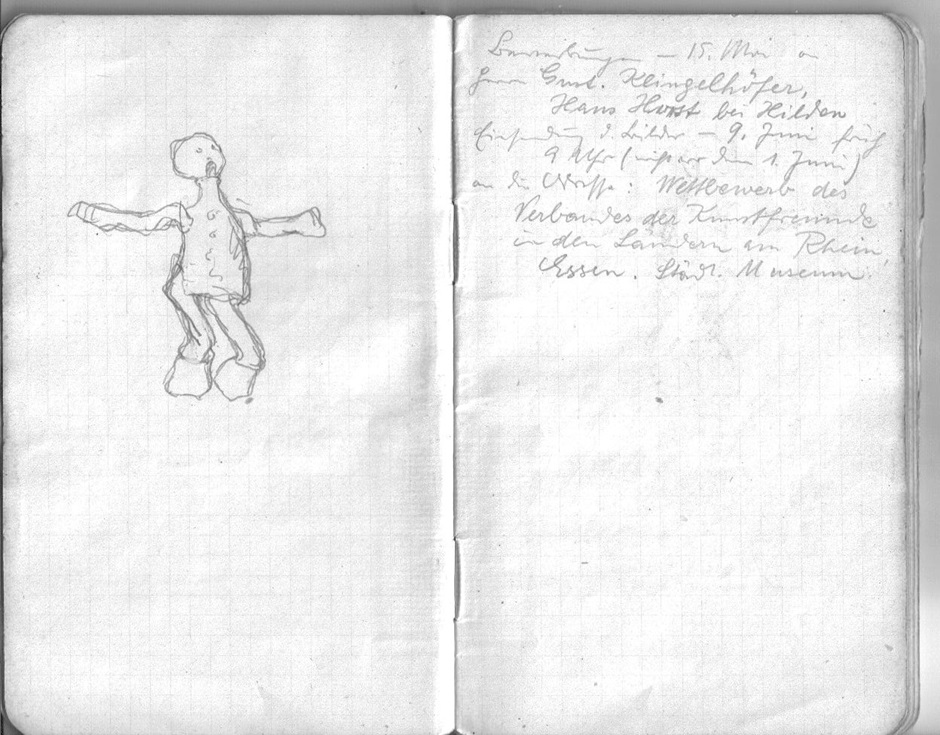 Bewerbungen – 15. Mai an
Herrn Gust. Klingelhöfer,
Haus Horst bei Hilden
Einsendung d. Bilder – 9. Juni früh
9 Uhr (nicht vor dem 1. Juni)
an die Adresse: Wettbewerb des
Verbandes der Kunstfreunde
in den Ländern am Rhein,
Essen. Städt. Museum.